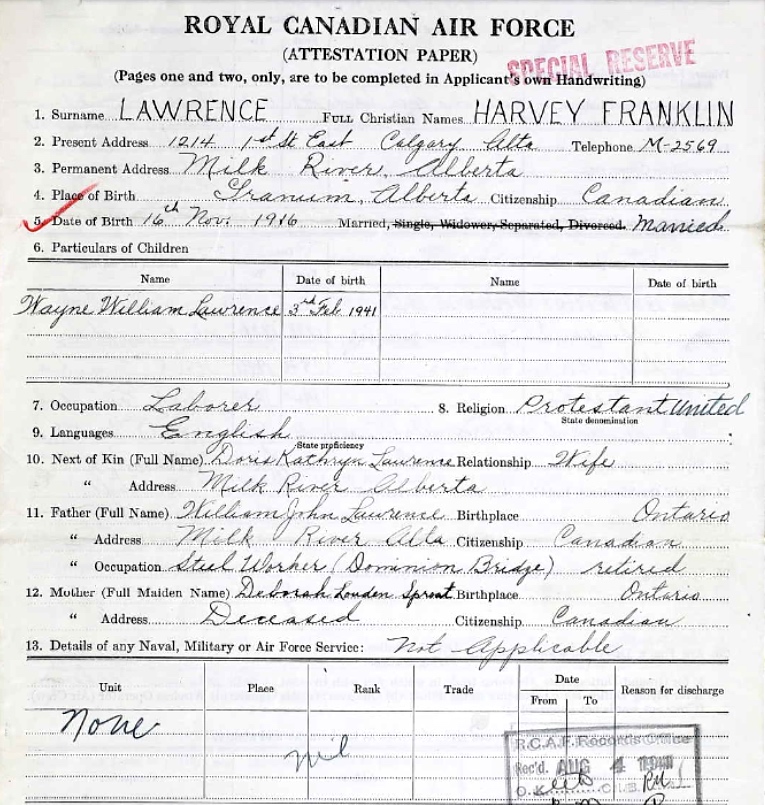 ROYAL CANADIAN AIR FORCE
(ATTESTATION PAPER)
SPECIAL RESERVE
(Pages one and two, only, are to be completed in Applicant's own Handwriting)
1. Surname LAWRENCE Full Christian Names HARVEY FRANKLIN
2. Present Address 1214 1st St East Calgary Alta Telephone M-2569
3. Permanent Address Milk River, Alberta
4. Place of Birth Granum, Alberta Citizenship Canadian
5. Date of Birth 16th Nov. 1916 Married, Single, Widower, Separated, Divorced. Married
6. Particulars of Children
Name Date of birth Name Date of birth
Wayne William Lawrence 3rd Feb 1941
7. Occupation Laborer 8. Religion Protestant United
State denomination
9. Languages English
State proficiency
10. Next of Kin (Full Name) Doris Kathryn Lawrence Relationship Wife
" Address Milk River Alberta
11. Father (Full Name) William John Lawrence Birthplace Ontario
" Address Milk River Alta Citizenship Canadian
" Occupation Steel Worker (Dominion Bridge) retired
12. Mother (Full Maiden Name) Deborah Louden Sproat Birthplace Ontario
" Address Deceased Citizenship Canadian
13. Details of any Naval, Military or Air Force Service: Not Applicable
Unit Place Rank Trade Date Reason for discharge
From To
None
nil
R.C.A.F. Records Office
Rec'd. AUG 4
O.K.